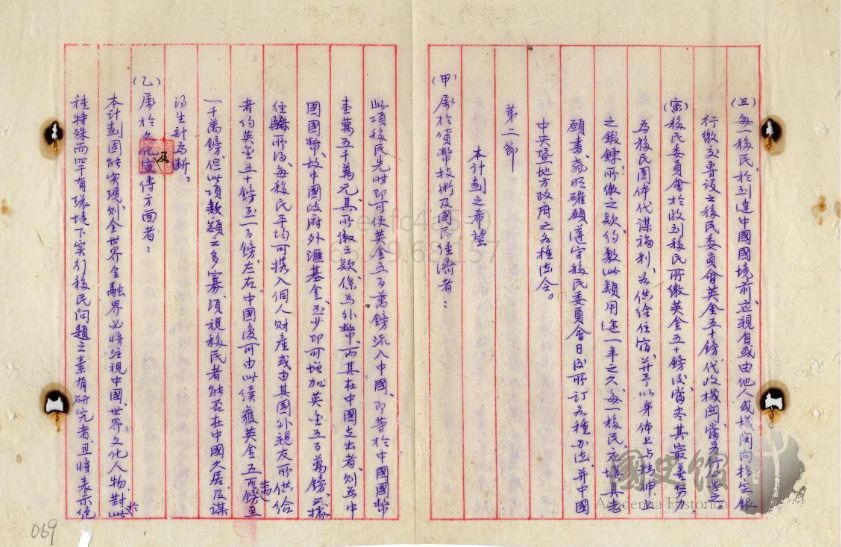 (丑)每一移民於到達中國國境前應親自或由他人或機関向指定銀
行繳交專設之移民委員會英金五十鎊代收機関當
(寅)移民委員會於收到移民所繳英金五十鎊後當盡其最善努力
為移民團体代謀福利為供給住宿并予以身体上与精神上
之鍛鍊所繳之款約敷此類用途一年之久每一移民應填具志
願書聲明確願遵守移民委員會日後所訂各種办法并中國
中央暨地方政府之各種法令。
第二節
本計劃之希望
(甲)属於貨幣技術及國民經濟者：
此項移民先時即可使英金五百萬鎊流入中國即等於中國國幣
壹萬万五千萬元其所繳之款係為外幣而其在中國支出者則為中
國國幣故中國政府外滙基金至少即可增加英金五百萬鎊據
往驗所得每移民平均可攜入個人財產或由其國外親友所供給
者約英金五十鎊至一百鎊左右中國復可由此續獲英金五百萬鎊至
一千萬鎊但此項款額之多寡須視移民者能否在中國久居及謀
得生計為斷。
(乙)属於文化宣傳方面者：
本計劃因能實現則全世界金融界必將注視中國世界文化人物對於此
種特殊而罕有環境下实行移民問題之素有研究者且將表示絶
069
國史館
Academia Historica